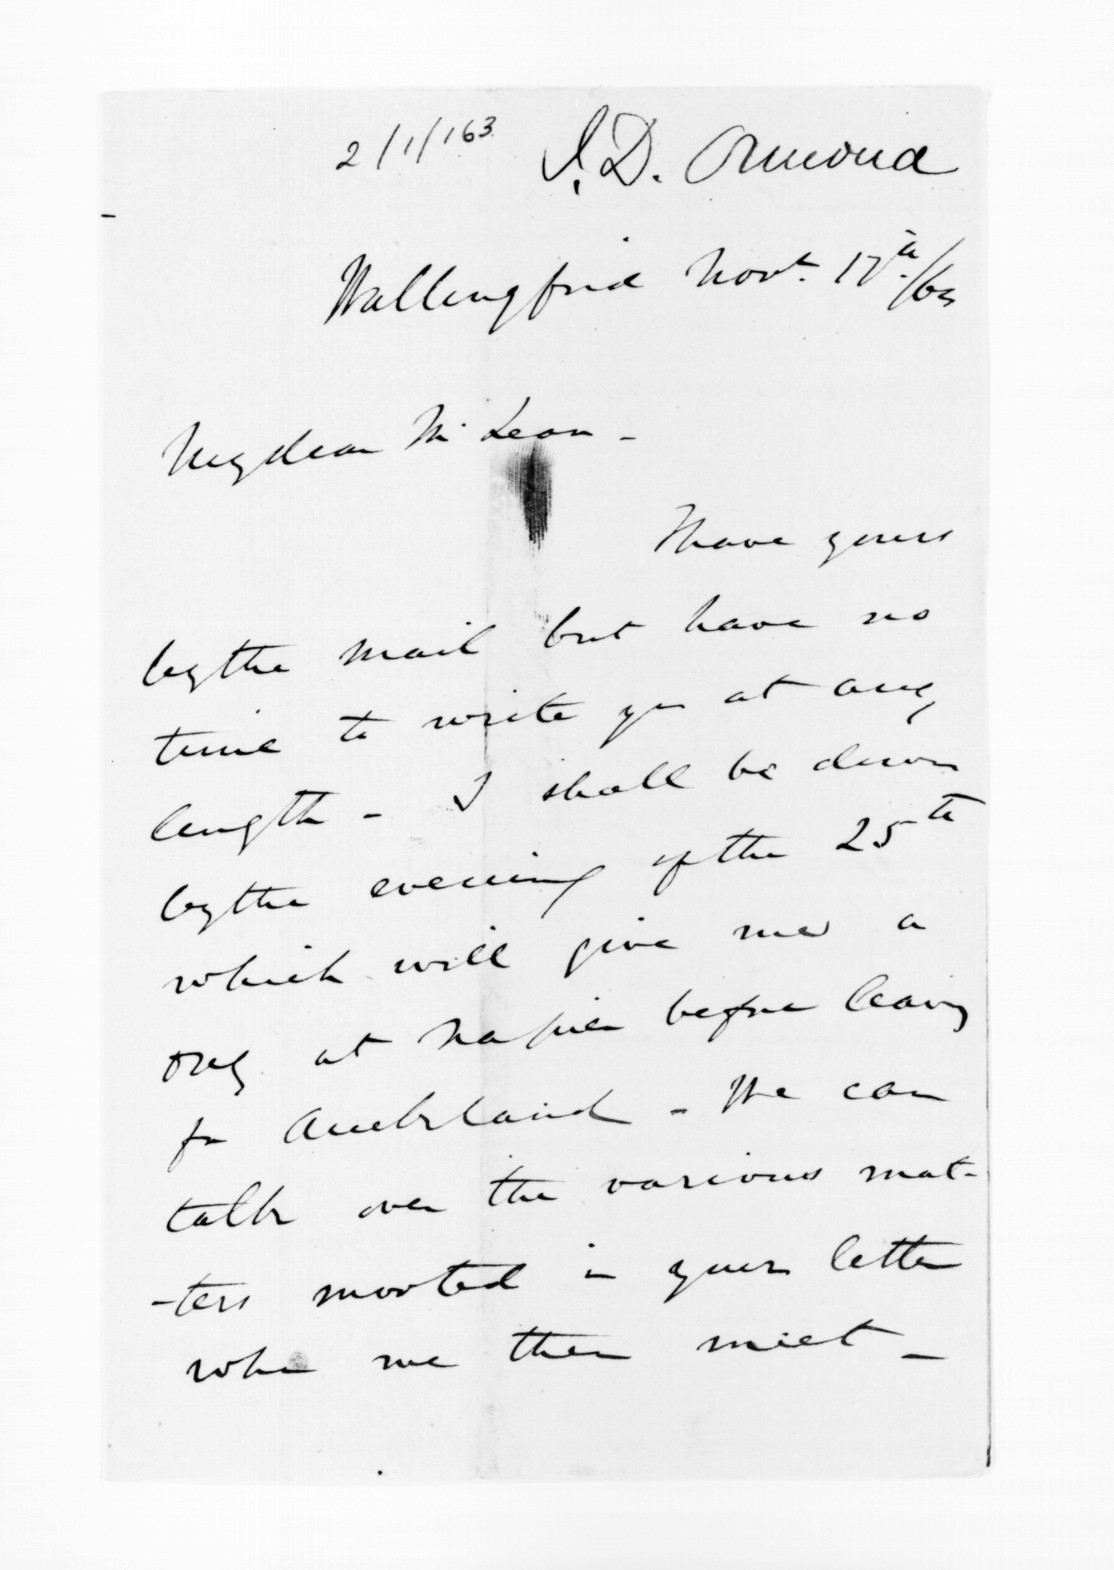 2/1/163
J. D. Ormond
Wallingford Novr. 17th./65
My dear McLean -
I have yours
by the mail but have no
time to write you at any
length - I shall be down
by the evening of the 25th
which will give me a
day at Napier before leaving
for Auckland - We can
talk over the various mat-
-ters mooted in your letter
when we then meet -